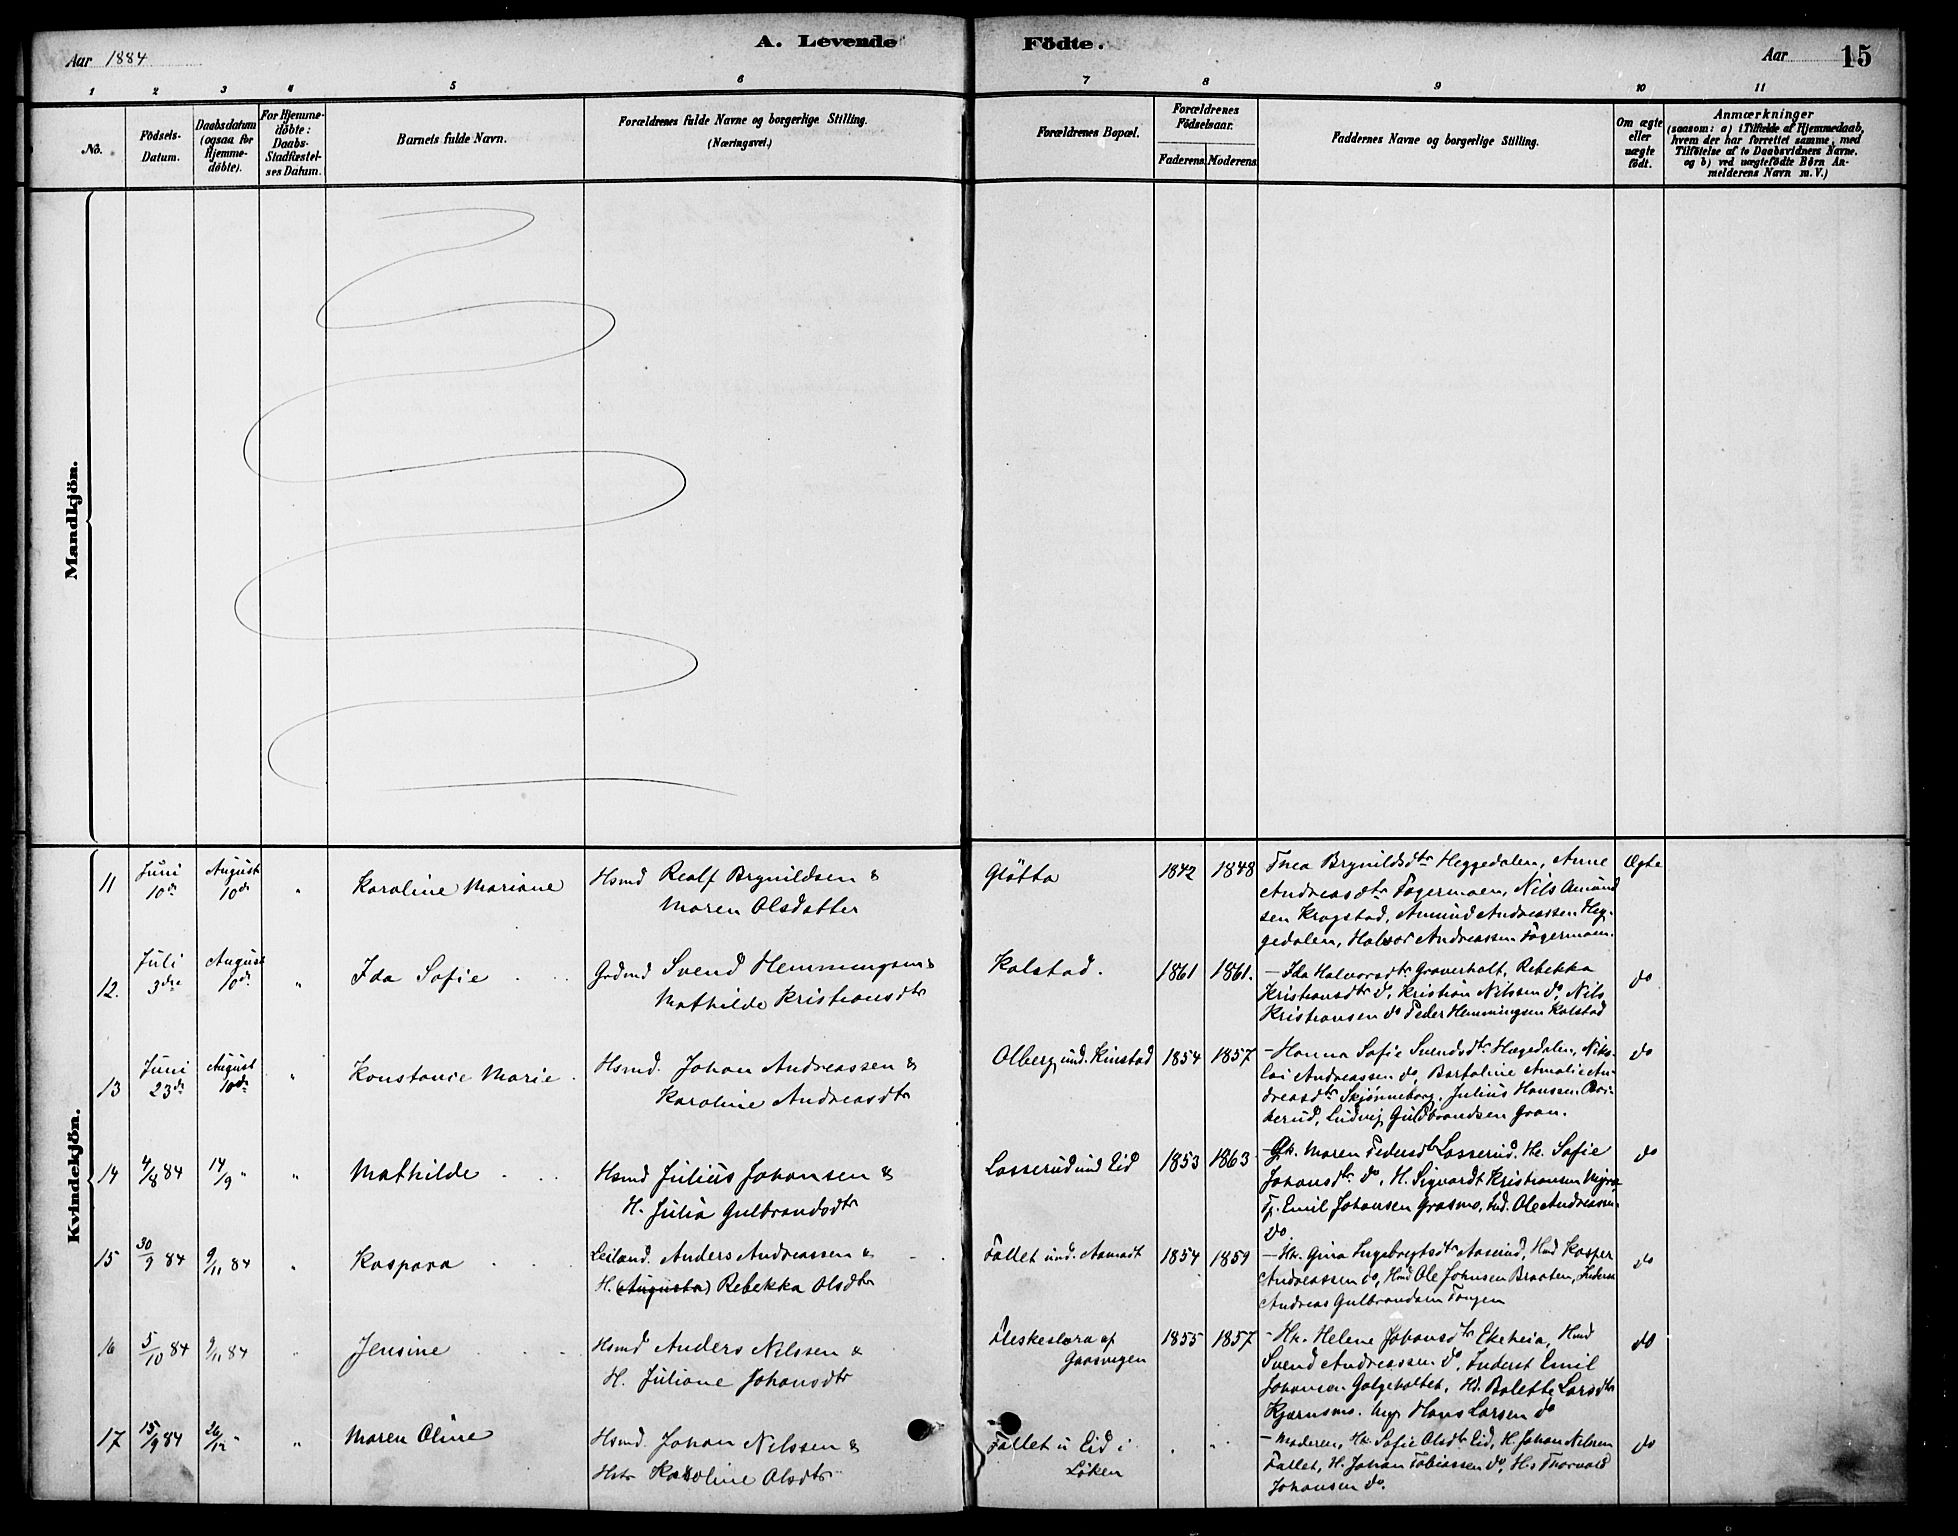 Aar 1884
A. Levende
Födte.
Aar
15
1 2 3 4 5 6 7 8 9 10 11
No.
Födsels-
Datum.
Daabsdatum
(ogsaa for
Hjemme-
döbte).
For Hjemme-
döbte:
Daabs-
Stadfæstel-
ses Datum.
Barnets fulde Navn.
Forældrenes fulde Navne og borgerlige Stilling.
(Næringsvei.)
Forældrenes Bopæl.
Forældrenes
Födselsaar.
Faderens. Moderens.
Faddernes Navne og borgerlige Stilling.
Om ægte
eller
uægte
födt.
Anmærkninger
(saasom: a) i Tilfælde af Hjemmedaab,
hvem der har forrettet samme, med
Tilföielse af to Daabsvidners Navne.
og b) ved uægtefödte Börn An-
melderens Navn m. V.)
Mandkjön.
Kvindekjön.
11
Juni
10de
August
10de
"
Karoline Mariane
Hsmd Realf Brynildsen &
Maren Olsdatter
Gløtta
1842 1848
Thea Brynildsdtr Heggedalen, Anne
Andreasdtr Fagermoen, Nils Amund
sen Krogstad, Amund Andreassen Heg-
gedalen, Halvor Andreassen Fagermoen.
Ægte
12.
Juli
3die
August
10de
"
Ida Sofie
Grdmd Svend Hemmingsen &
Mathilde Kristiansdtr
Kolstad.
1861 1861.
- Ida Halvorsdtr Graverholt, Rebekka
Kristiansdtr do, Kristian Nilssen do, Nils
Kristiansen do Peder Hemmingsen Kolstad
do
13
Juni
23de
August
10de
"
Konstance Marie
Hsmd. Johan Andreassen &
Karoline Andreasdtr
Olberg und. Kinstad
1854 1857
- Hanna Sofie Svendsdtr Hægedalen, Niko-
lai Andreassen do, Bartoline Amalie An-
dreasdtr Skjønneborg, Julius Hanssen
Ludvig Guldbrandsen Gran.
do
14
4/8 84
14/9 "
"
Mathilde
Hsmd Julius Johansen &
H. Julia Gulbrandsdtr
Lasserud und Eid
1853 1863
Maren Pedersdtr Lasserud. He. Sofie
Johansdtr do, H. Sigvardt Kristiansen
Emil Johansen Grasmo, Ole Andreassen
do
do
15
30/9 84
9/11 84
"
Kaspara
Leiland. Anders Andreassen &
H. (Augusta) Rebekka Olsdtr
Fallet und. Aamodt
1854 1859
- Hu. Gina Ingebregtsdtr Aaserud, Hmd Kasper
Andreassen do, Hmd Ole Johnsen Braaten, Inderst
Andreas Gulbrandsen Tangen
do
16
5/10 84
9/11 84
"
Jensine
Hsmd Anders Nilssen &
H. Juliane Johansdtr
Fleskeslora af
Gaasvigen
1855 1857
- Hu. Helene Johansdtr Ekeheia, Hmd
Svend Andreassen do, Inderst Emil
Johansen Galgeholtet, Hu. Bolette Larsdtr
Kjærnsmo. Hans Larsen do
do
17
15/9 84
26/12 "
"
Maren Oline
Hsmd. Johan Nilssen &
Hstr Karoline Olsdtr
Fallet u Eid i
Løken
" "
- Moderen, Hu. Sofie Olsdtr Eid, H. Johan Nilssen
Fallet, H. Johan Tobiassen do, H. Thorvald
Johansen do.
do